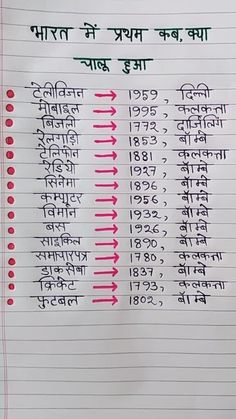 भारत में प्रथम कब, क्या
चालू हुआ
टेलीविजन → 1959, दिल्ली
मोबाइल → 1995, कलकत्ता
बिजली → 1772, दार्जिलिंग
रेलगाड़ी → 1853, बॉम्बे
टेलिफोन → 1881, कलकत्ता
रेडियो → 1927, बॉम्बे
सिनेमा → 1896, बॉम्बे
कम्प्युटर → 1956, बॉम्बे
विमान → 1932, बॉम्बे
बस → 1926, बॉम्बे
साइकिल → 1890, बॉम्बे
समाचारपत्र → 1780, कलकत्ता
डाकसेवा → 1837, बॉम्बे
क्रिकेट → 1793, कलकत्ता
फुटबल → 1802, बॉम्बे